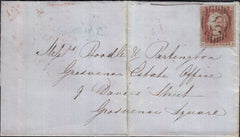 Messrs Boodle & Partington
Grosvenor Estate Office
9 Davies Street
Grosvenor Square